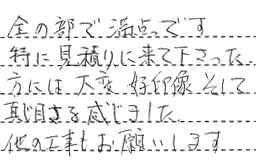 全の部で満点です
特に見積りに来て下さった
方には大変好印像そして
真じ目さを感じました
他の工事もお願いします